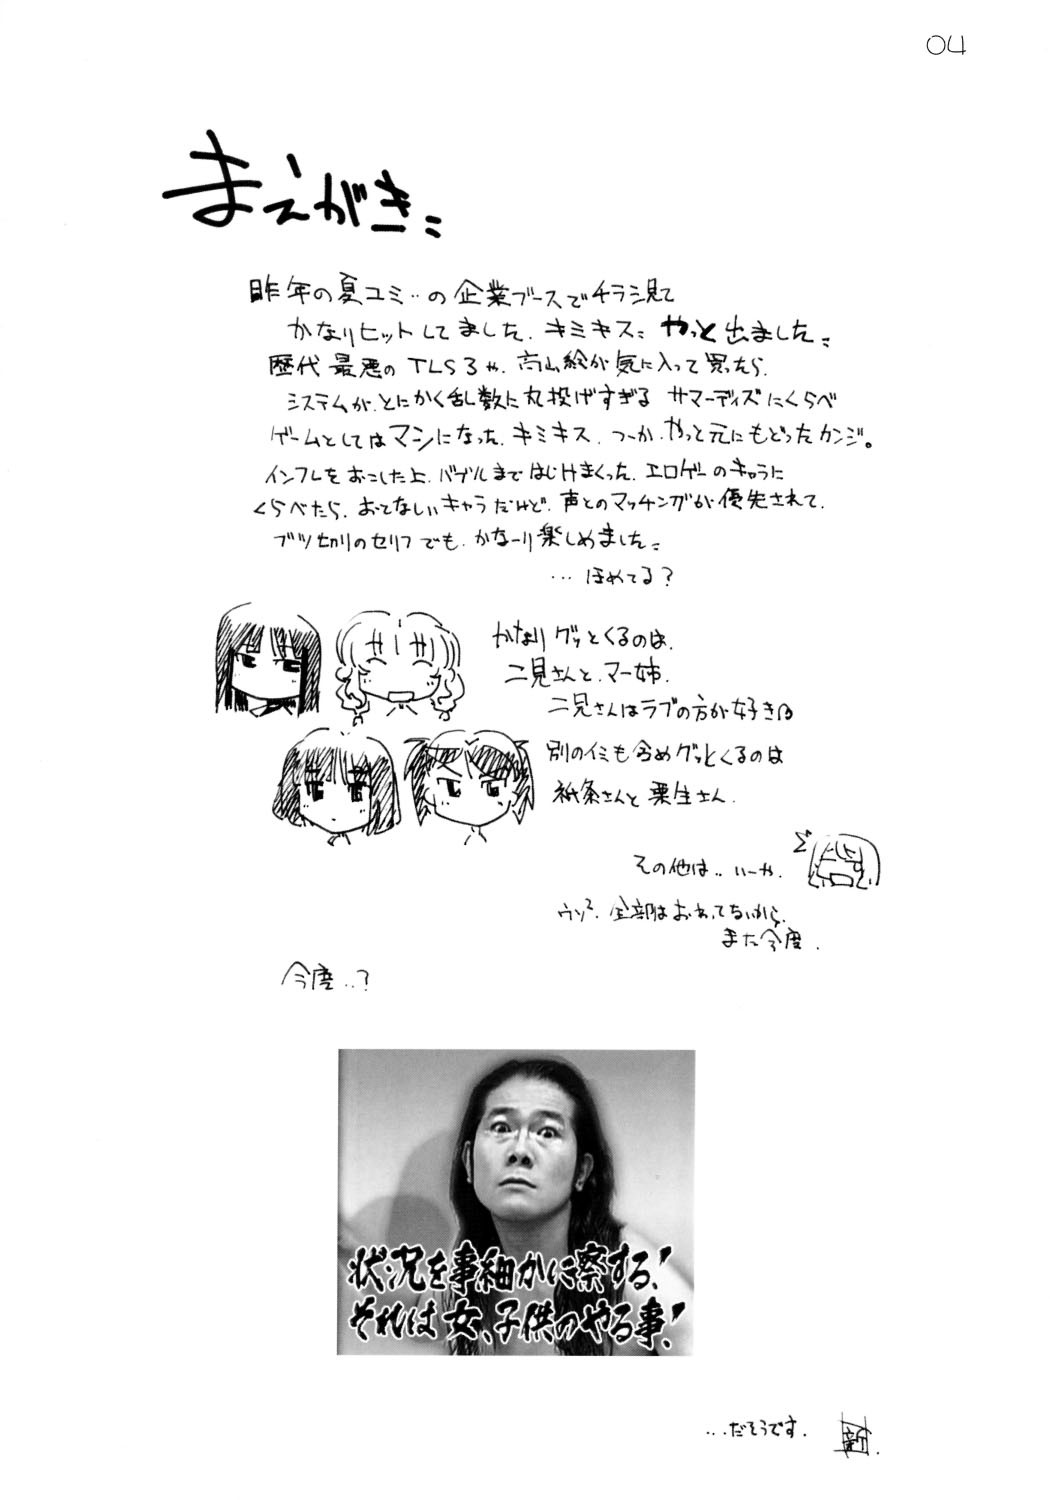 04
まえがき
昨年の夏コミ‥の企業ブースでチラシ見て
かなりヒットしてました。キミキス。やっと出ました。
歴代最悪のTLS3や、高山絵が気に入って買ったら、
システムが、とにかく乱数に丸投げすぎる サマーデイズにくらべ
ゲームとしてはマシになった、キミキス。つーか、やっと元にもどったカンジ。
インフレをおこした上、バブルまではじけまくった、エロゲーのキャラに
くらべたら、おとなしいキャラだけど、声とのマッチングが優先されて、
ブツ切りのセリフでも、かなーり楽しめました。
…ほめてる?
かなりグッとくるのは、
二見さんと、マー姉。
二見さんはラブの方が好き
別のイミも含めグッとくるのは
祇条さんと栗生さん。
その他は‥いーや。
ウソ²。全部はおわってないから、
また今度。
今度‥?
状況を事細かに察する!
それは女、子供のやる事!
…だそうです。
新